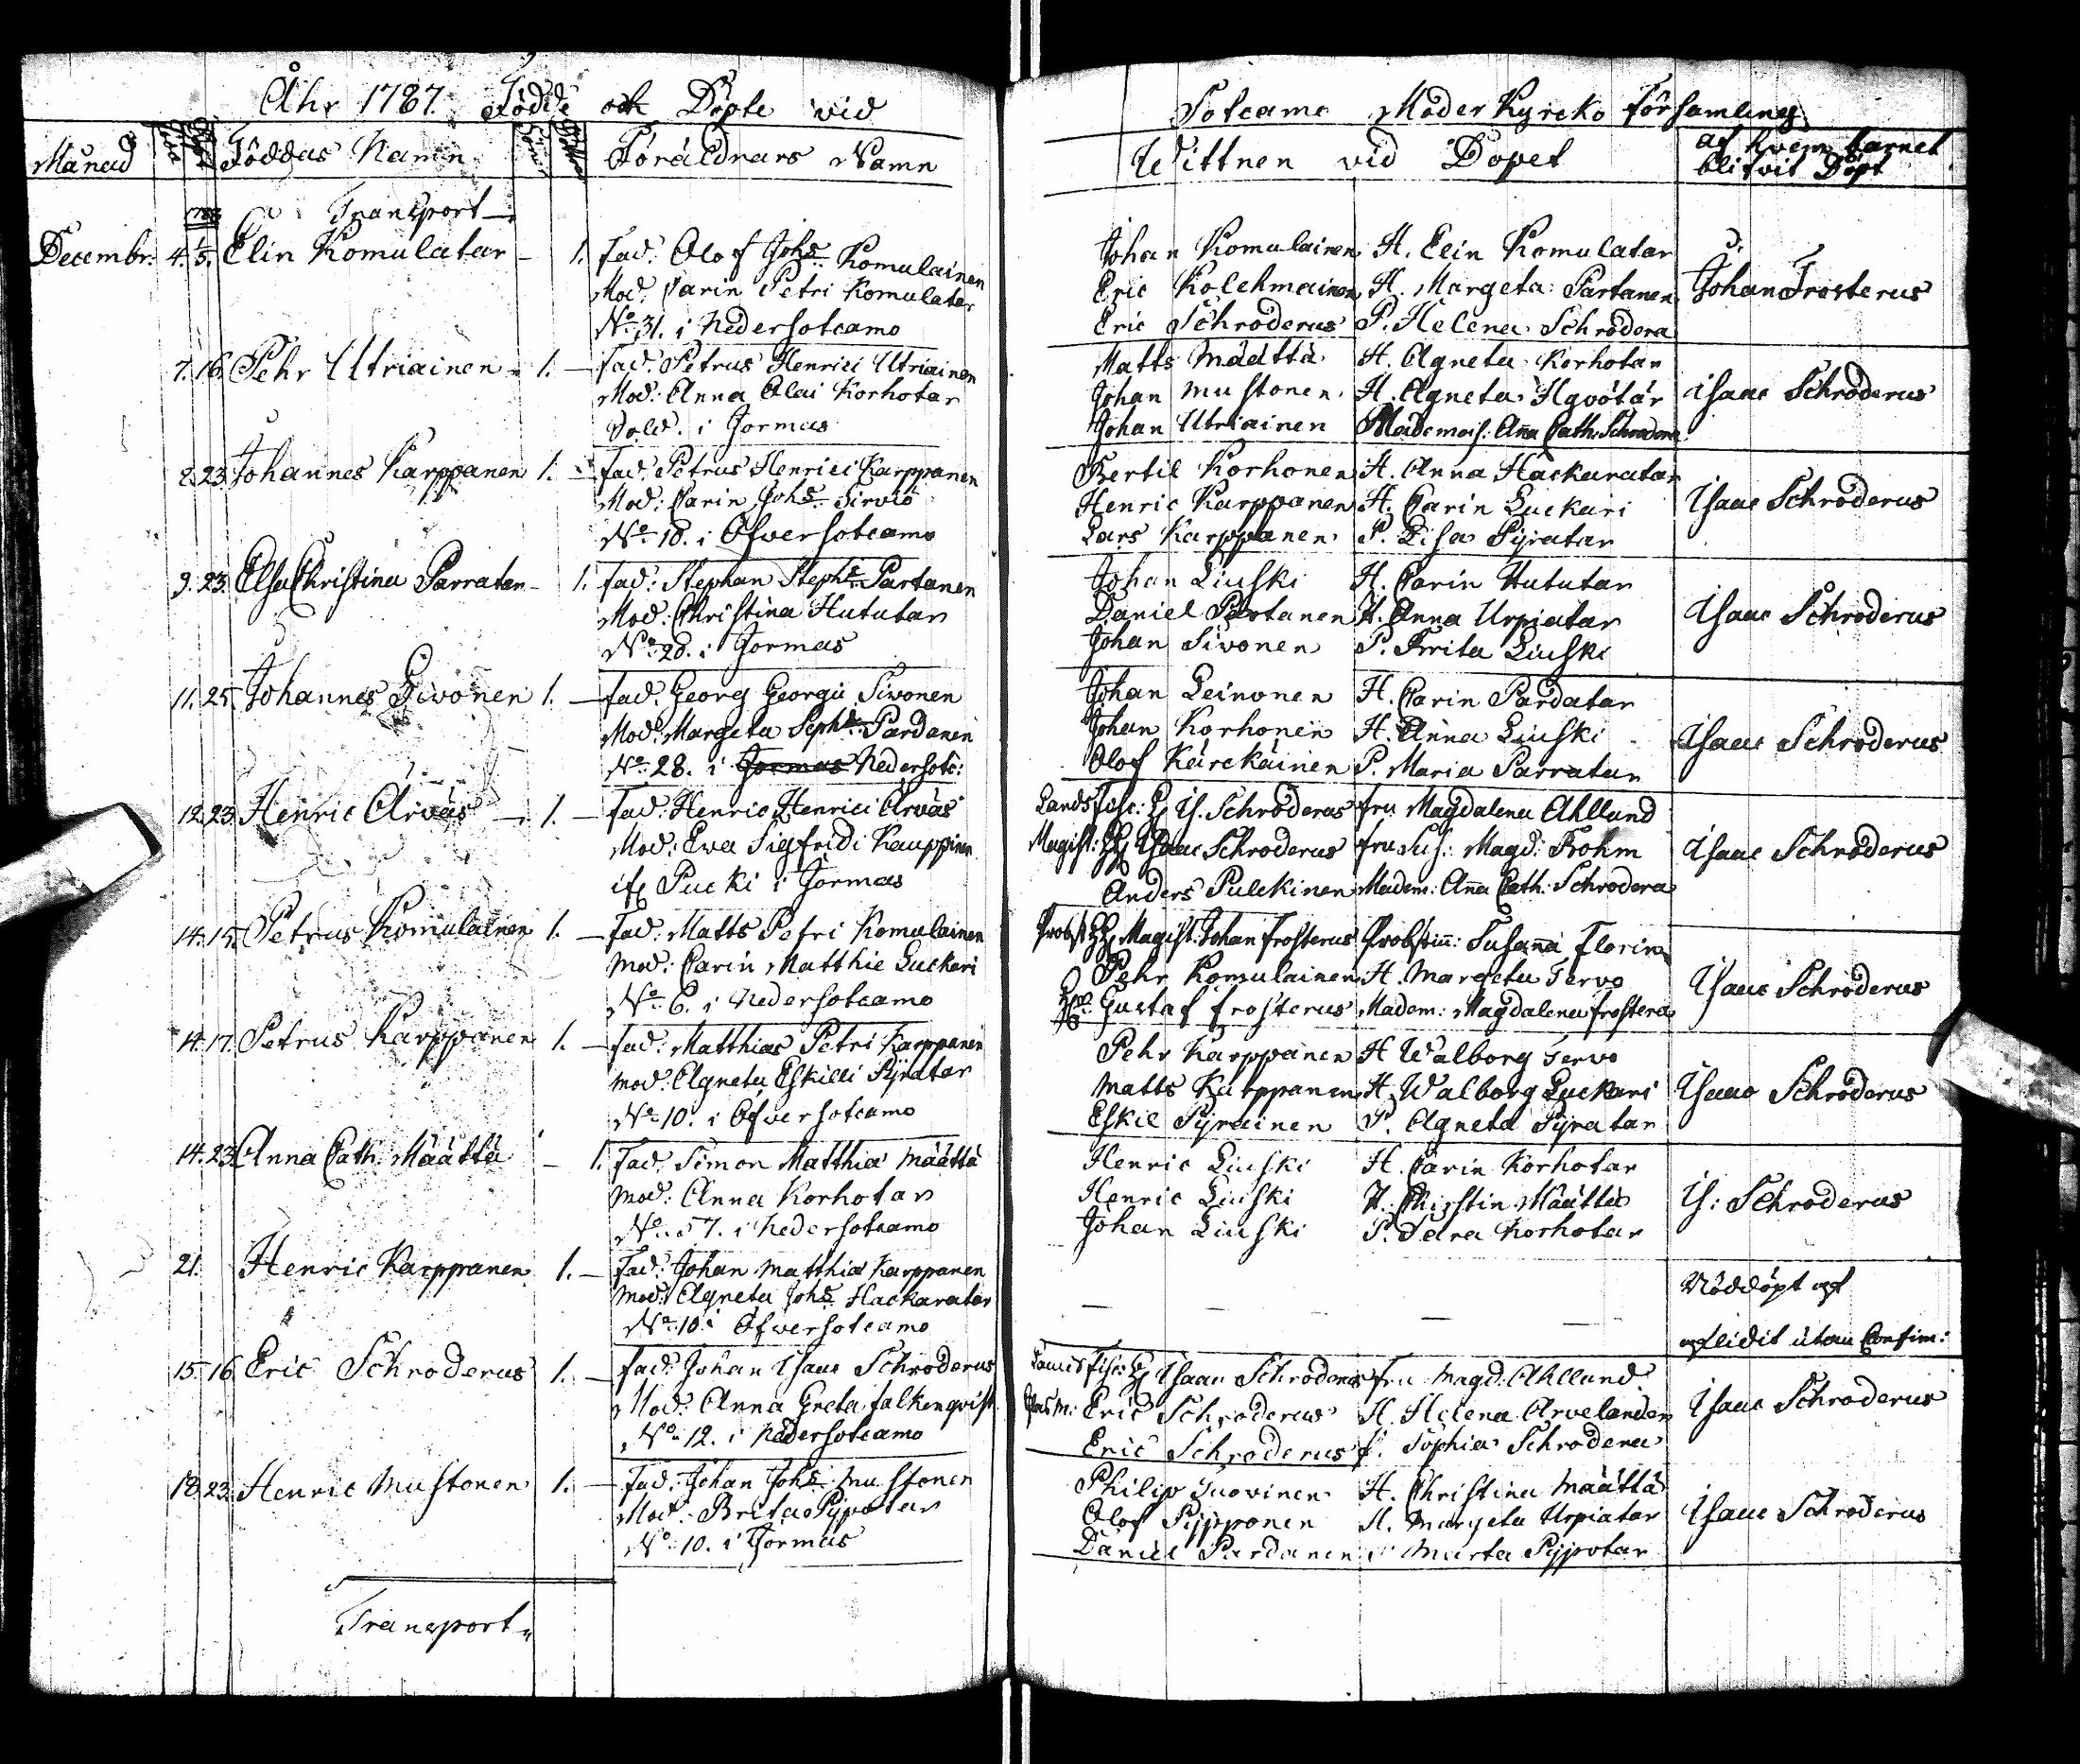 Åhr 1787. Födde och Döpte vid
Månad Föddas Namn Föräldrars Namn
Transport
Decembr. 4. 1/5. Elin Komulatar 1. Fad. Olof Johs Komulainen
Mod. Carin Petri Komulatar
No 31. i Nedersotcamo
7. 16. Pehr Utriainen 1. Fad. Petrus Henrici Utriainen
Mod: Anna Olai Korhotar
Sold. i Jormas
8. 23. Johannes Karppanen 1. Fad. Petrus Henrici Karppanen
Mod: Carin Johs Sirviö
No 18. i Öfversotcamo
9. 23. Elsa Christina Parratar 1. Fad: Stephan Stephs Partanen
Mod: Christina Hututar
No 28. i Jormas
11. 25. Johannes Sivonen 1. Fad. Georg Georgii Sivonen
Mod: Margeta Seph: Pardanen
No 28. i Jormas Nedersotc:
12. 23. Henric Arväs 1. Fad. Henric Henrici Arväs
Mod: Eva Sigfridi Kauppinen
Pucki i Jormas
14. 15. Petrus Komulainen 1. Fad: Matts Petri Komulainen
Mod: Carin Matthie Luckari
No 6. i Nedersotcamo
14. 17. Petrus Karppanen 1. Fad: Matthias Petri Karppanen
Mod: Agneta Eskilli Pyratar
No 10. i Öfversotcamo
14. 23. Anna Cath. Määttä 1. Fad. Simon Matthiæ Määttä
Mod: Anna Korhotar
No 57. i Nedersotcamo
21. Henric Karppanen 1. Fad: Johan Matthiæ Karppanen
Mod: Agneta Johs Hackaratar
No 10. i Öfversotcamo
15. 16. Eric Schroderus 1. Fad: Johan Isaac Schroderus
Mod: Anna Greta Falkenqvist
No 12. i Nedersotcamo
18. 23. Henric Mustonen 1. Fad. Johan Johs Mustonen
Mod: Brita Pypotar
No 10. i Jormas
Transport
Sotcamo Moder Kyrcko Församling
Wittnen vid Dopet af hvem barnet
blifvit Döpt
Johan Komulainen H. Elin Komulatar
Eric Kolehmainen H. Margeta Partanen Johan Frosterus
Eric Schroderus P. Helena Schrodera
Matts Määttä H. Agneta Korhotar
Johan Mustonen H. Agneta Hyvötär Isaac Schroderus
Johan Utriainen Mademois: Anna Cath. Schrodera
Bertil Korhonen H. Anna Hackaratar
Henric Karppanen H. Carin Luckari Isaac Schroderus
Lars Karppanen P. Disa Pyratar
Johan Liuski H. Carin Hututar
Daniel Partanen H. Anna Urpiatar Isaac Schroderus
Johan Sivonen P. Brita Liuski
Johan Leinonen H. Carin Pardatar
Johan Korhonen H. Anna Liuski Isaac Schroderus
Olof Kärckäinen P. Maria Parratar
Lands Fisc: H. Is. Schroderus Fru Magdalena Ahllund
Magist: H. Isaac Schroderus Fru Sus: Magd: Frohm Isaac Schroderus
Anders Pulckinen Madem: Anna Cath: Schrodera
Probst H. Magist. Johan Frosterus Probstinn: Susanna Florin
Pehr Komulainen H. Margeta Tervo Isaac Schroderus
Gustaf Frosterus Madem: Magdalena Frostera
Pehr Karppanen H Walborg Tervo
Matts Karppanen H. Walborg Luckari Isaac Schroderus
Eskil Pyrainen P. Agneta Pyratar
Henric Liuski H. Carin Korhotar
Henric Liuski H. Christin Määttä Is: Schroderus
Johan Liuski P. Korhotar
Nöddöpt och
afledit utan Confim:
Lands Fisc: H. Isaac Schroderus Fru Magd: Ahllund
Eric Schroderus H. Helena Arvelander Isaac Schroderus
Eric Schroderus P. Sophia Schrodera
Philip Juovinen H. Christina Määttä
Olof Pypponen H. Margeta Urpiatar Isaac Schroderus
Daniel Pardanen P Marta Pypotar